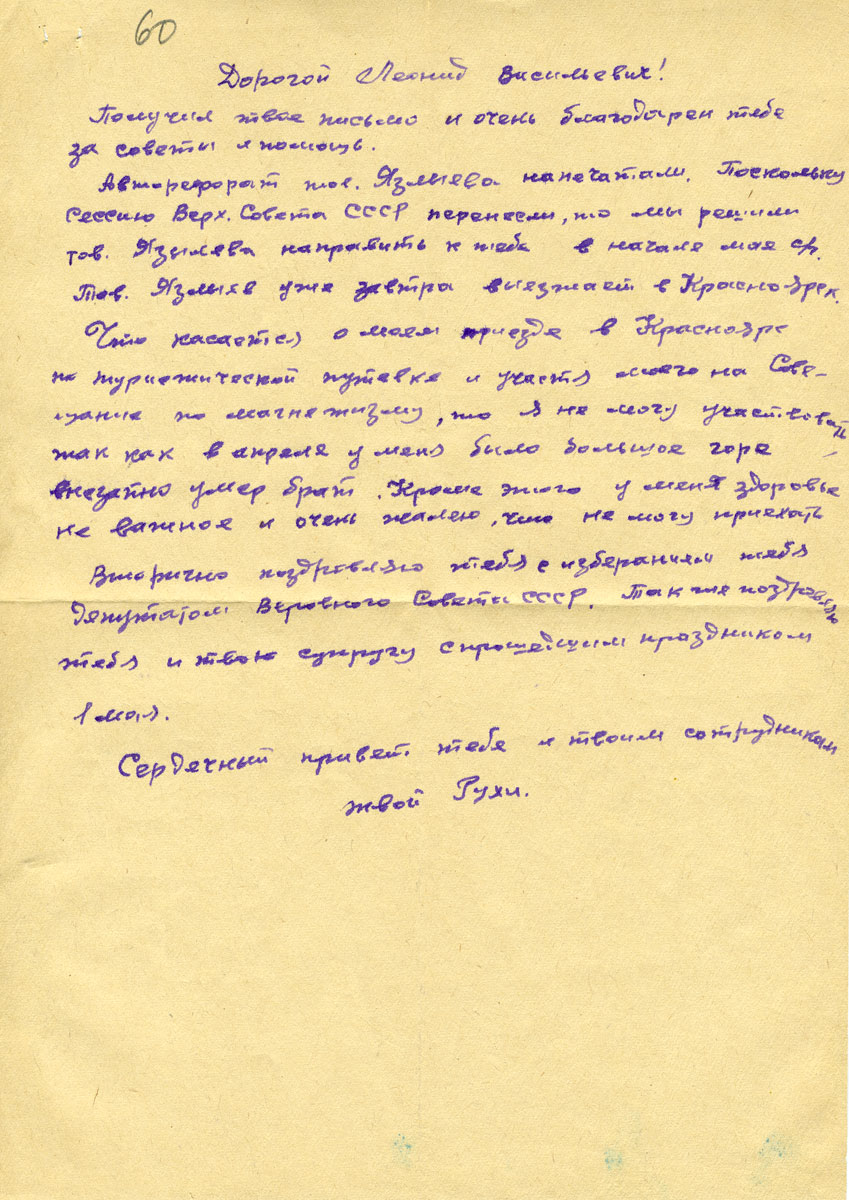 60
Дорогой Леонид Васильевич!
Получил твое письмо и очень благодарен тебе
за советы и помощь.
Автореферат тов. Язлыева напечатали. Поскольку
Сессию Верх. Совета СССР перенесли, то мы решили
тов. Язылева направить к тебе в начале мая с/г.
Тов. Язлыев уже завтра выезжает в Красноярск.
Что касается о моем приезде в Красноярс
по туристической путевке и участя моего на Сове-
щание по магнетизму, то я не могу участвовать
так как в апреле у меня было большое горе
внезапно умер брат. Кроме этого у меня здоровье
не важное и очень жалею, что не могу приехать
Вторично поздровляю тебя с изберанием тебя
Депутатом Верховного Совета СССР. Также поздровляю
тебя и твою супругу с прошедшим праздником
1 мая.
Сердечный привет тебе и твоим сотрудникам
твой Рухи.